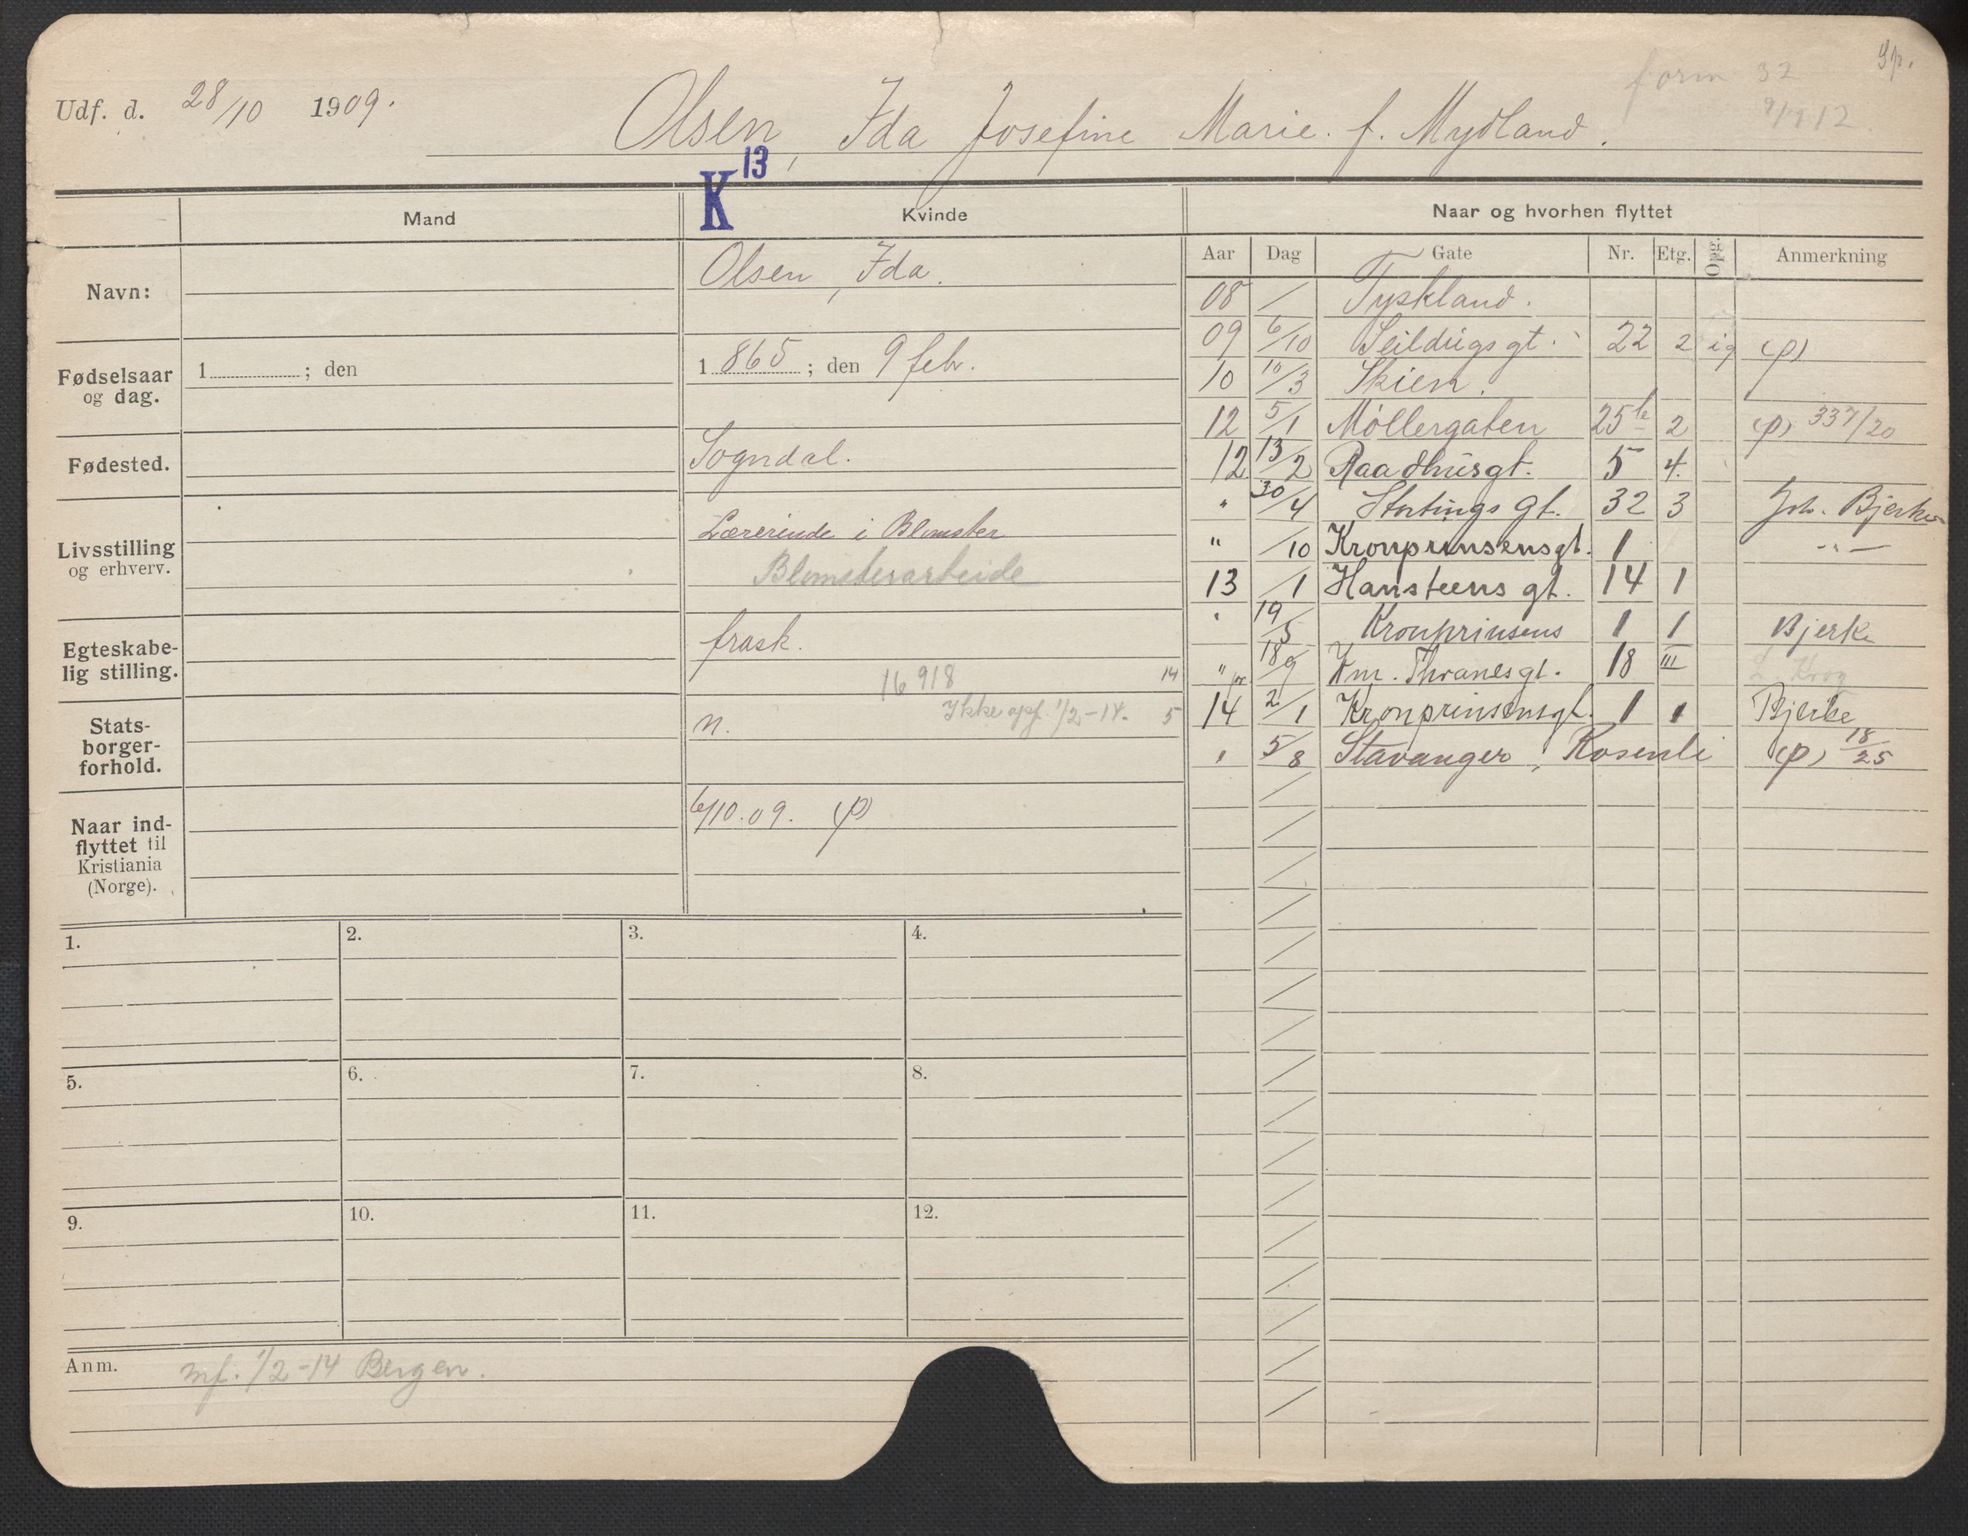 Udf. d. 28/10 1909.
Olsen, Ida Josefine Marie. f. Mydland.
form 32
K 13
Mand
Kvinde
Naar og hvorhen flyttet
Aar Dag Gate Nr. Etg. Opg. Anmerkning
Navn:
Olsen, Ida.
Fødselsaar og dag.
1 ; den
1 865 ; den 9 febr.
Fødested.
Sogndal.
Livsstilling og erhverv.
Lærerinde i Blomster
Blomsterarbeide
Egteskabelig stilling.
frask.
16918
14
Ikke opf. 1/2-14. 5
Statsborgerforhold.
n.
Naar indflyttet til Kristiania (Norge).
6/10.09. (p)
08 / Tyskland.
09 6/10 Seildugsgt. 22 2 ig (p)
10 10/3 Skien.
12 5/1 Møllergaten 25 b 2 (p) 337/20
12 13/2 Raadhusgt. 5 4.
" 30/4 Stortingsgt. 32 3 Joh. Bjerke
" /10 Kronprinsensgt. 1 -"-
13 /1 Hansteensgt. 14 1
" 19/5 Kronprinsens 1 1 Bjerke
" 18/9 Km. Thranesgt. 18 III Krog
14 2/1 Kronprinsensgt. 1 1 Bjerke
" 5/8 Stavanger, Rosenli (p) 18/25
1. 2. 3. 4.
5. 6. 7. 8.
9. 10. 11. 12.
Anm. mf. 1/2-14 Bergen.